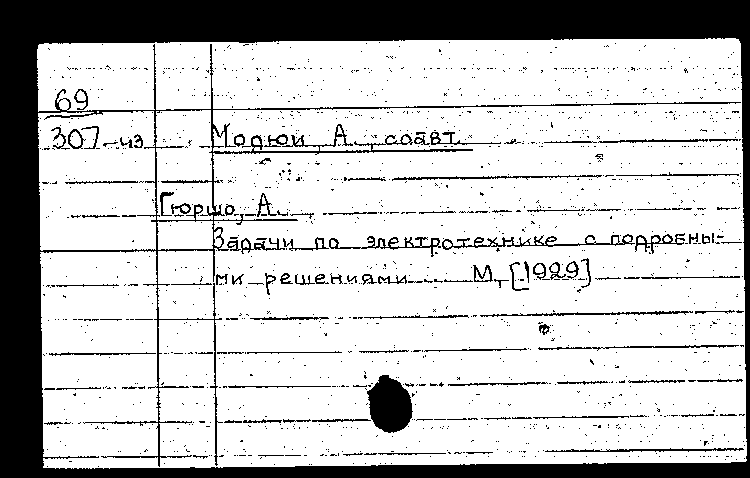 69
307-чз Модюи, А., соавт.
Гюршо, А.
Задачи по электротехнике с подробны-
ми решениями... М, [1929]